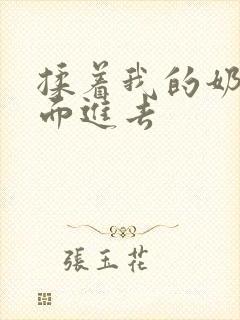 揉着我的奶
而進去
張玉花